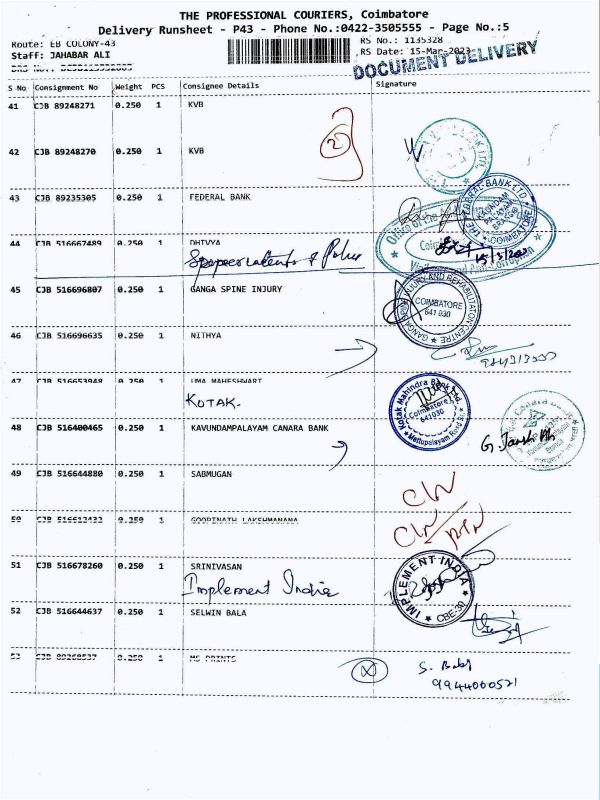 THE PROFESSIONAL COURIERS, Coimbatore
Delivery Runsheet - P43 - Phone No.:0422-3505555 - Page No.:5
Route: EB COLONY-43
RS No.: 1135328
Staff: JAHABAR ALI
RS Date: 15-Mar-2023
DOCUMENT DELIVERY
S No Consignment No Weight PCS Consignee Details Signature
41 CJB 89248271 0.250 1 KVB
2
42 CJB 89248270 0.250 1 KVB
43 CJB 89235305 0.250 1 FEDERAL BANK
BANK LTD.
COIMBATORE
Office of the
44 CJB 516667489 0.250 1 DHIVYA
15/3/2023
45 CJB 516696807 0.250 1 GANGA SPINE INJURY
GANGA SPINE INJURY AND REHABILITATION CENTRE
COIMBATORE
641 030
46 CJB 516696635 0.250 1 NITHYA
47 CJB 516653948 0.250 1 UMA MAHESHWARI
KOTAK.
Kotak Mahindra Bank Ltd.
Coimbatore
641030
Mettupalayam Road
48 CJB 516400465 0.250 1 KAVUNDAMPALAYAM CANARA BANK
49 CJB 516644880 0.250 1 SABMUGAN
50 CJB 516612422 0.250 1 GOOPINATH LAKSHMANANA
51 CJB 516678260 0.250 1 SRINIVASAN
Implement India
IMPLEMENT INDIA
CBE-30
52 CJB 516644637 0.250 1 SELWIN BALA
53 CJB 89268537 0.250 1 MS PRINTS
S. Babs
9944060521